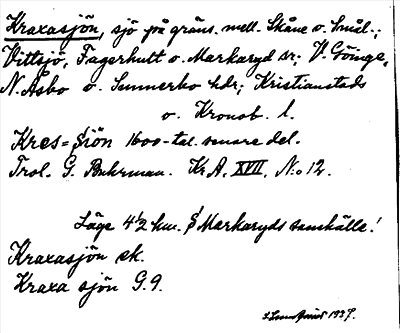 Kraxasjön, sjö på gräns. mell. Skåne o. Smål.;
Vittsjö, Fagerhult o. Markaryd sr; V. Göinge,
N. Åsbo o. Sunnerbo hdr; Kristianstads
o. Kronob. l.
Kres=Siön 1600-tal. senare del.
Trol. G. Buhrman. Kr.A. XVII, N:o 12.
Läge 4½ km. S Markaryds samhälle!
Kraxasjön ek.
Kraxa sjön G.9.
1937.